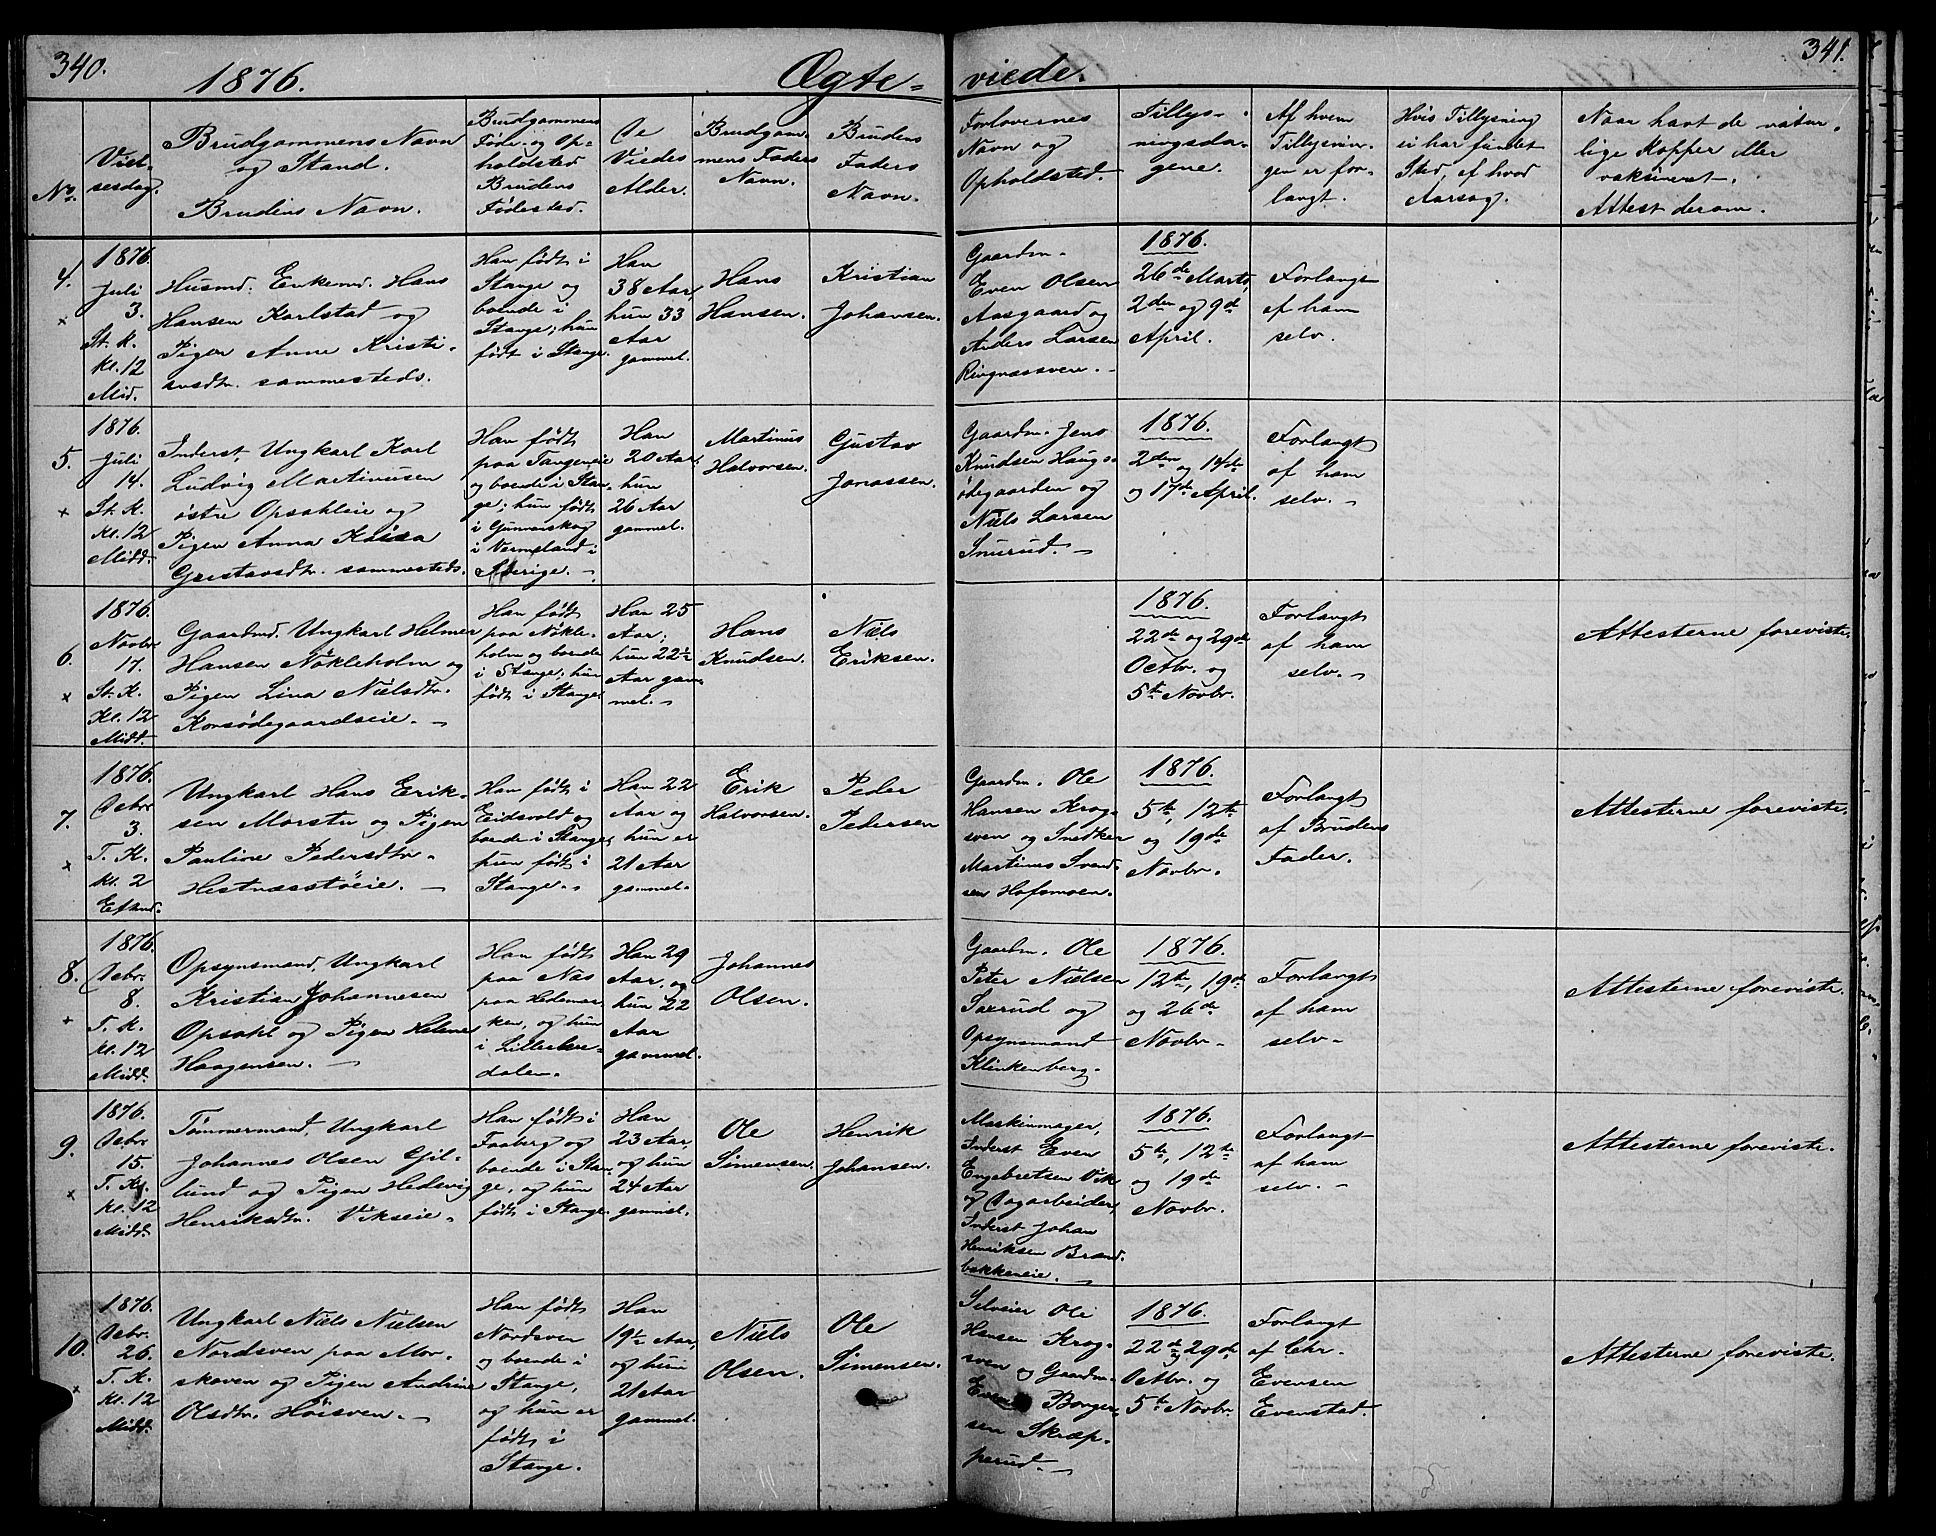 340.
1876.
Ægte-
viede.
341.
No.
Viel-
sesdag.
Brudgommens Navn
og Stand.
Brudens Navn.
Brudgommens
Føde- og Op-
holdsted
Brudens
Fødested.
De
Viedes
Alder.
Brudgom-
mens Faders
Navn.
Brudens
Faders
Navn.
Forlovernes
Navn og
Opholdsted.
Tillys-
ningsda-
gene.
Af hvem
Tillysnin-
gen er for-
langt.
Hvis Tillysning
ei har fundet
Sted, af hvad
Aarsag.
Naar havt de natur-
lige Kopper eller
vaksineret.
Attest derom.
4.
×
1876.
Juli
3.
St. K.
kl. 12
Mid.
Husmd. Enkemd. Hans
Hansen Karlstad og
Pigen Anne Kristi-
ansdtr. sammesteds.
Han født i
Stange og
boende i
Stange; hun
født i Stange.
Han
38 Aar,
hun 33
Aar
gammel.
Hans
Hansen.
Kristian
Johansen.
Gaardm.
Even Olsen
Aasgaard og
Anders Larsen
Ringnæssveen.
1876.
26de Marts,
2den og 9de
April.
Forlangt
af ham
selv.
5.
×
1876.
Juli
14.
St. K.
kl. 12
Midd.
Inderst, Ungkarl Karl
Ludvig Martinusen
østre Opsahleie og
Pigen Anna Kaisa
Gustavsdtr. sammesteds.
Han født
paa Tangeneie
og boende i Stan-
ge; hun født
i Gunnarskog
i Vermeland i
Sverige.
Han
20 Aar,
hun
26 Aar
gammel.
Martinus
Halvorsen.
Gustav
Jonassen.
Gaardm. Jens
Knudsen Haugs-
ødegaarden og
Niels Larsen
Snurud.
1876.
2den og 14de
og 17de April.
Forlangt
af ham
selv.
6.
×
1876.
Novbr.
17.
St. K.
Kl. 12
Midd.
Gaardmd. Ungkarl Helmer
Hansen Nökleholm og
Pigen Lina Nielsdtr.
Korsødegaardseie.
Han født
paa Nökle-
holm og boende
i Stange; hun
født i Stange.
Han 25
Aar;
hun 22½
Aar gam-
mel.
Hans
Knudsen.
Niels
Eriksen.
1876.
22de og 29de
Octbr. og
5te Novbr.
Forlangt
af ham
selv.
Attesterne foreviste.
7.
×
1876.
Decbr.
3.
T. K.
kl. 2
Eftmd.
Ungkarl Hans Erik-
sen Morstu og Pigen
Pauline Pedersdtr.
Hestnæsstøeie.
Han født i
Eidsvold og
boende i Stange,
hun født i
Stange.
Han 22
Aar og
hun er
21 Aar
gammel.
Erik
Halvorsen.
Peder
Pedersen
Gaardm. Ole
Hansen Krog-
sven og Snedker
Martinus Svend-
sen Hofsmoen.
1876.
5te, 12te
og 19de
Novbr.
Forlangt
af Brudens
Fader.
Attesterne foreviste.
8.
×
1876.
Decbr.
8.
T. K.
kl. 12
Midd.
Opsynsmand, Ungkarl
Kristian Johannesen
Opsahl og Pigen Helene
Haagensen.
Han født
paa Næs
paa Hedemar-
ken, og hun
i Lilleelve-
dalen.
Han 29
Aar, og
hun 22
Aar
gammel.
Johannes
Olsen.
Gaardm. Ole
Peter Nielsen
Saxrud og
Opsynsmand
Klinkenberg.
1876.
12te, 19de
og 26de
Novbr.
Forlangt
af ham
selv.
Attesterne foreviste.
9.
×
1876.
Decbr.
15.
T. K.
kl. 12
Midd.
Tömmermand, Ungkarl
Johannes Olsen Gjil-
lund og Pigen Hedevig
Henriksdtr. Vikseie.
Han født i
Faaberg og
boende i Stan-
ge, og hun
født i Stange.
Han
23 Aar,
og hun
24 Aar
gammel.
Ole
Simensen.
Henrik
Johansen.
Maskinmager,
Inderst Even
Engebretsen Vik
og Dagarbeider,
Inderst Johan
Henriksen Brænd-
bakkeneie.
1876.
5te, 12te
og 19de
Novbr.
Forlangt
af ham
selv.
Attesterne foreviste.
10.
×
1876.
Decbr.
26.
T. K.
kl. 12
Midd.
Ungkarl Niels Nielsen
Nordsven paa Mor-
skoven og Pigen Andrine
Olsdtr. Höisven.
Han født
Nordsven
og boende i
Stange,
og hun er
født i
Stange.
Han
19½ Aar,
og hun
21 Aar
gammel.
Niels
Olsen.
Ole
Simensen.
Selveier Ole
Hansen Krog-
sven og Gaardm.
Even Borger-
sen Skræp-
perud.
1876.
22de og 29de
Octbr. og
5te Novbr.
Forlangt
af Chr.
Evensen
Evenstad.
Attesterne foreviste.